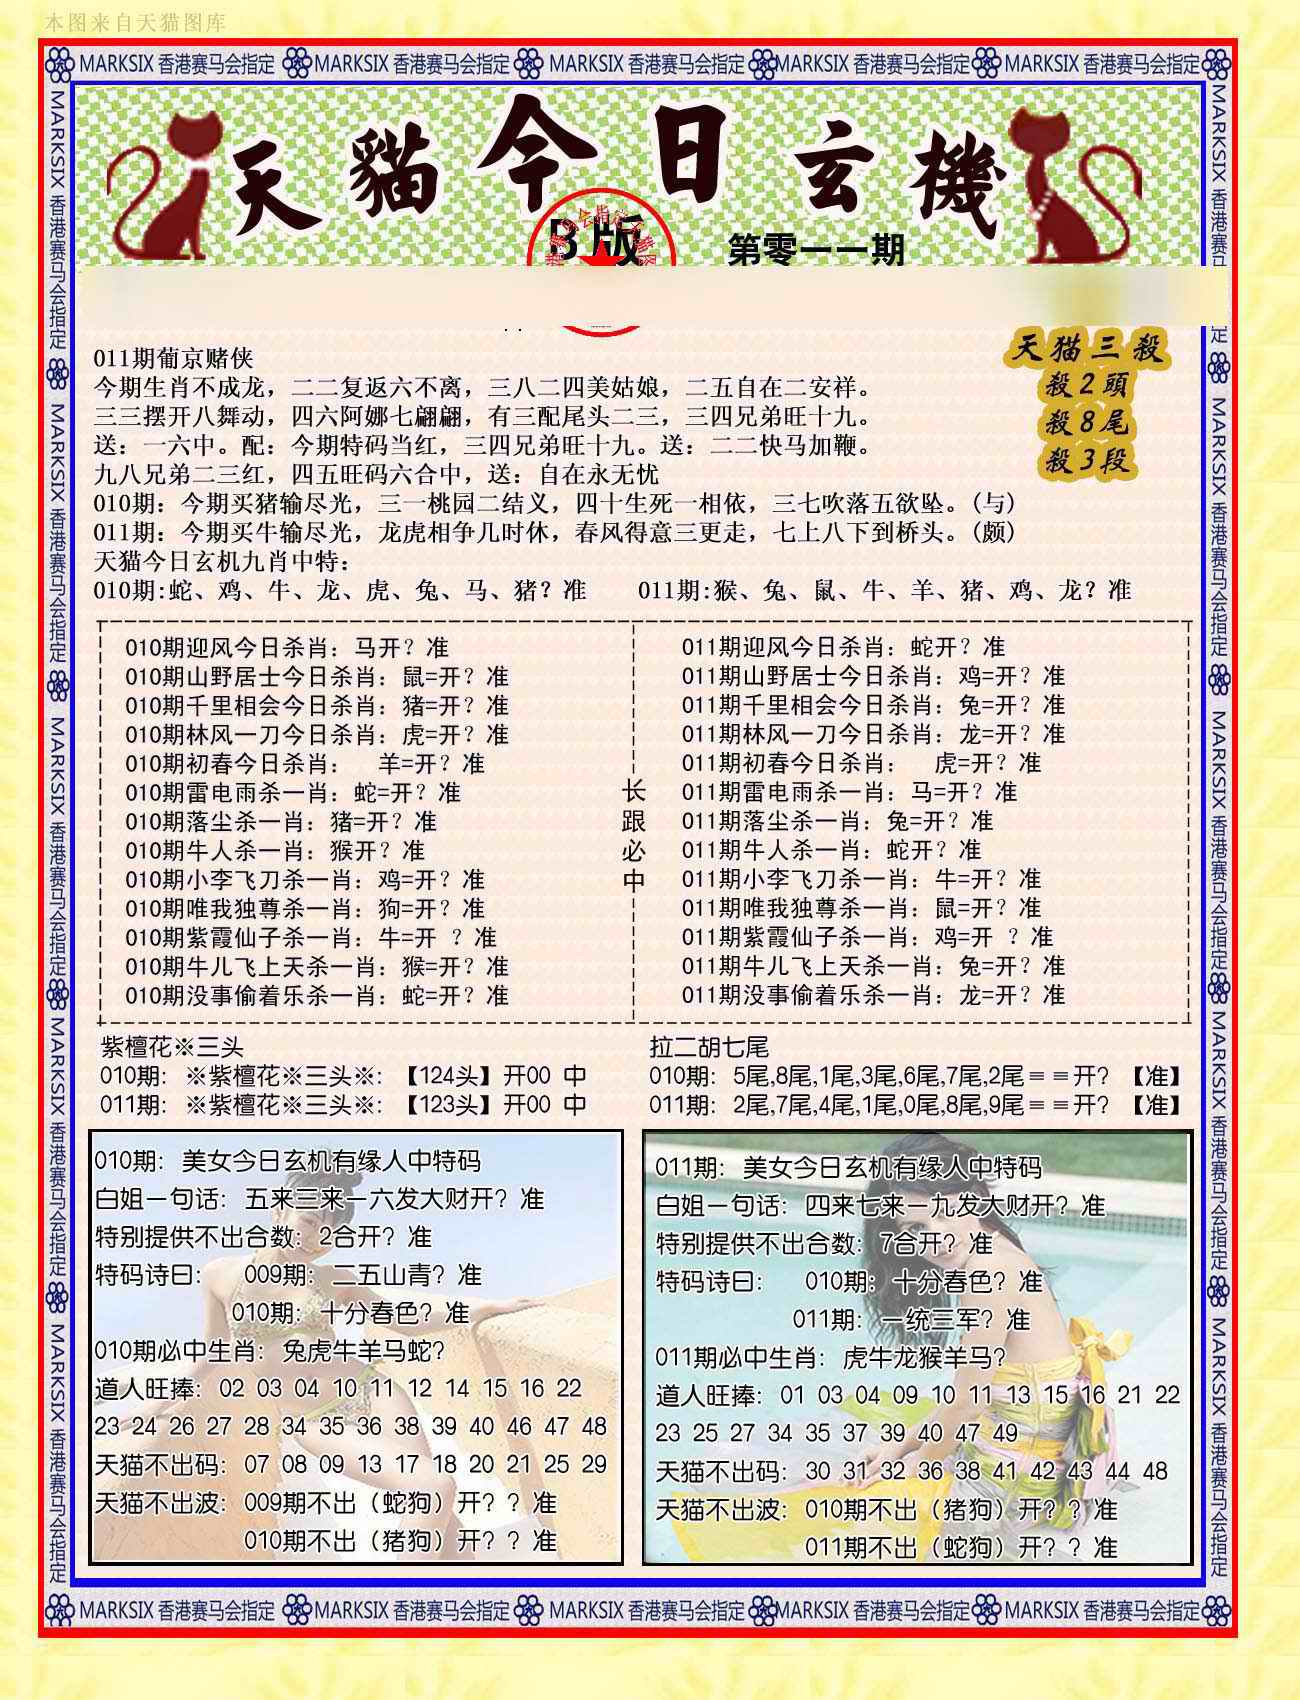 本图来自天猫图库
MARKSIX 香港赛马会指定 MARKSIX 香港赛马会指定 MARKSIX 香港赛马会指定 MARKSIX 香港赛马会指定 MARKSIX 香港赛马会指定
天貓今日玄機
B版
第零一一期
天猫三殺
殺2頭
殺8尾
殺3段
011期葡京赌侠
今期生肖不成龙，二二复返六不离，三八二四美姑娘，二五自在二安祥。
三三摆开八舞动，四六阿娜七翩翩，有三配尾头二三，三四兄弟旺十九。
送：一六中。配：今期特码当红，三四兄弟旺十九。送：二二快马加鞭。
九八兄弟二三红，四五旺码六合中，送：自在永无忧
010期：今期买猪输尽光，三一桃园二结义，四十生死一相依，三七吹落五欲坠。(与)
011期：今期买牛输尽光，龙虎相争几时休，春风得意三更走，七上八下到桥头。(颇)
天猫今日玄机九肖中特：
010期:蛇、鸡、牛、龙、虎、兔、马、猪？准 011期:猴、兔、鼠、牛、羊、猪、鸡、龙？准
010期迎风今日杀肖：马开？准
010期山野居士今日杀肖：鼠=开？准
010期千里相会今日杀肖：猪=开？准
010期林风一刀今日杀肖：虎=开？准
010期初春今日杀肖： 羊=开？准
010期雷电雨杀一肖：蛇=开？准
010期落尘杀一肖：猪=开？准
010期牛人杀一肖：猴开？准
010期小李飞刀杀一肖：鸡=开？准
010期唯我独尊杀一肖：狗=开？准
010期紫霞仙子杀一肖：牛=开 ？准
010期牛儿飞上天杀一肖：猴=开？准
010期没事偷着乐杀一肖：蛇=开？准
长
跟
必
中
011期迎风今日杀肖：蛇开？准
011期山野居士今日杀肖：鸡=开？准
011期千里相会今日杀肖：兔=开？准
011期林风一刀今日杀肖：龙=开？准
011期初春今日杀肖： 虎=开？准
011期雷电雨杀一肖：马=开？准
011期落尘杀一肖：兔=开？准
011期牛人杀一肖：蛇开？准
011期小李飞刀杀一肖：牛=开？准
011期唯我独尊杀一肖：鼠=开？准
011期紫霞仙子杀一肖：鸡=开 ？准
011期牛儿飞上天杀一肖：兔=开？准
011期没事偷着乐杀一肖：龙=开？准
紫檀花※三头
010期：※紫檀花※三头※：【124头】开00 中
011期：※紫檀花※三头※：【123头】开00 中
拉二胡七尾
010期：5尾,8尾,1尾,3尾,6尾,7尾,2尾＝＝开？【准】
011期：2尾,7尾,4尾,1尾,0尾,8尾,9尾＝＝开？【准】
010期：美女今日玄机有缘人中特码
白姐一句话：五来三来一六发大财开？准
特别提供不出合数：2合开？准
特码诗曰： 009期：二五山青？准
010期：十分春色？准
010期必中生肖：兔虎牛羊马蛇？
道人旺捧：02 03 04 10 11 12 14 15 16 22
23 24 26 27 28 34 35 36 38 39 40 46 47 48
天猫不出码：07 08 09 13 17 18 20 21 25 29
天猫不出波：009期不出（蛇狗）开？？准
010期不出（猪狗）开？？准
011期：美女今日玄机有缘人中特码
白姐一句话：四来七来一九发大财开？准
特别提供不出合数：7合开？准
特码诗曰： 010期：十分春色？准
011期：一统三军？准
011期必中生肖：虎牛龙猴羊马？
道人旺捧：01 03 04 09 10 11 13 15 16 21 22
23 25 27 34 35 37 39 40 47 49
天猫不出码：30 31 32 36 38 41 42 43 44 48
天猫不出波：010期不出（猪狗）开？？准
011期不出（蛇狗）开？？准
MARKSIX 香港赛马会指定 MARKSIX 香港赛马会指定 MARKSIX 香港赛马会指定 MARKSIX 香港赛马会指定
MARKSIX 香港赛马会指定 MARKSIX 香港赛马会指定 MARKSIX 香港赛马会指定 MARKSIX 香港赛马会指定
MARKSIX 香港赛马会指定 MARKSIX 香港赛马会指定 MARKSIX 香港赛马会指定 MARKSIX 香港赛马会指定 MARKSIX 香港赛马会指定